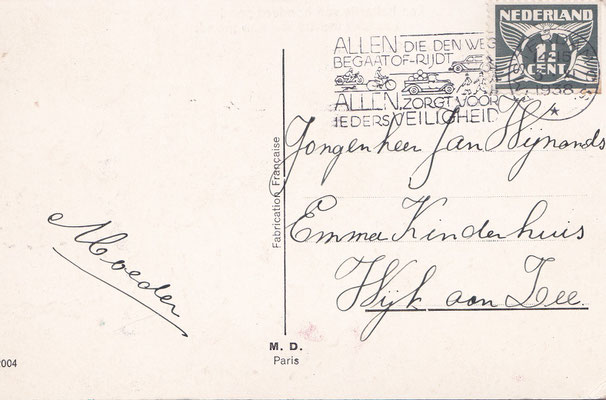 NEDERLAND
1½
CENT
ALLEN DIE DEN WEG
BEGAAT OF-RIJDT
ALLEN, ZORGT VOOR
IEDERS VEILIGHEID
1938
Jongenheer Jan Wijnands
Emma Kinderhuis
Wijk aan Zee.
Moeder
Fabrication Française
M. D.
Paris
2004